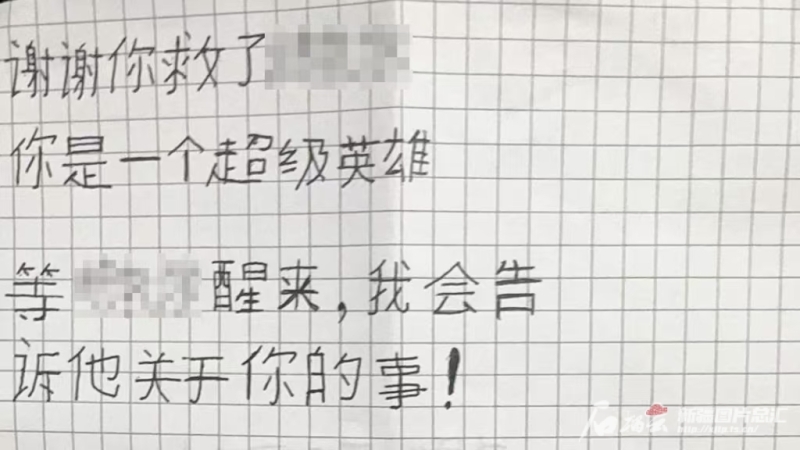 谢谢你救了
你是一个超级英雄
等 醒来，我会告
诉他关于你的事！